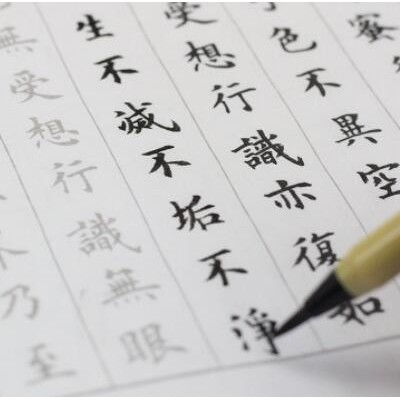 蜜
色不異空
受想行識亦復如
生不滅不垢不淨
無受想行識無眼
乃至